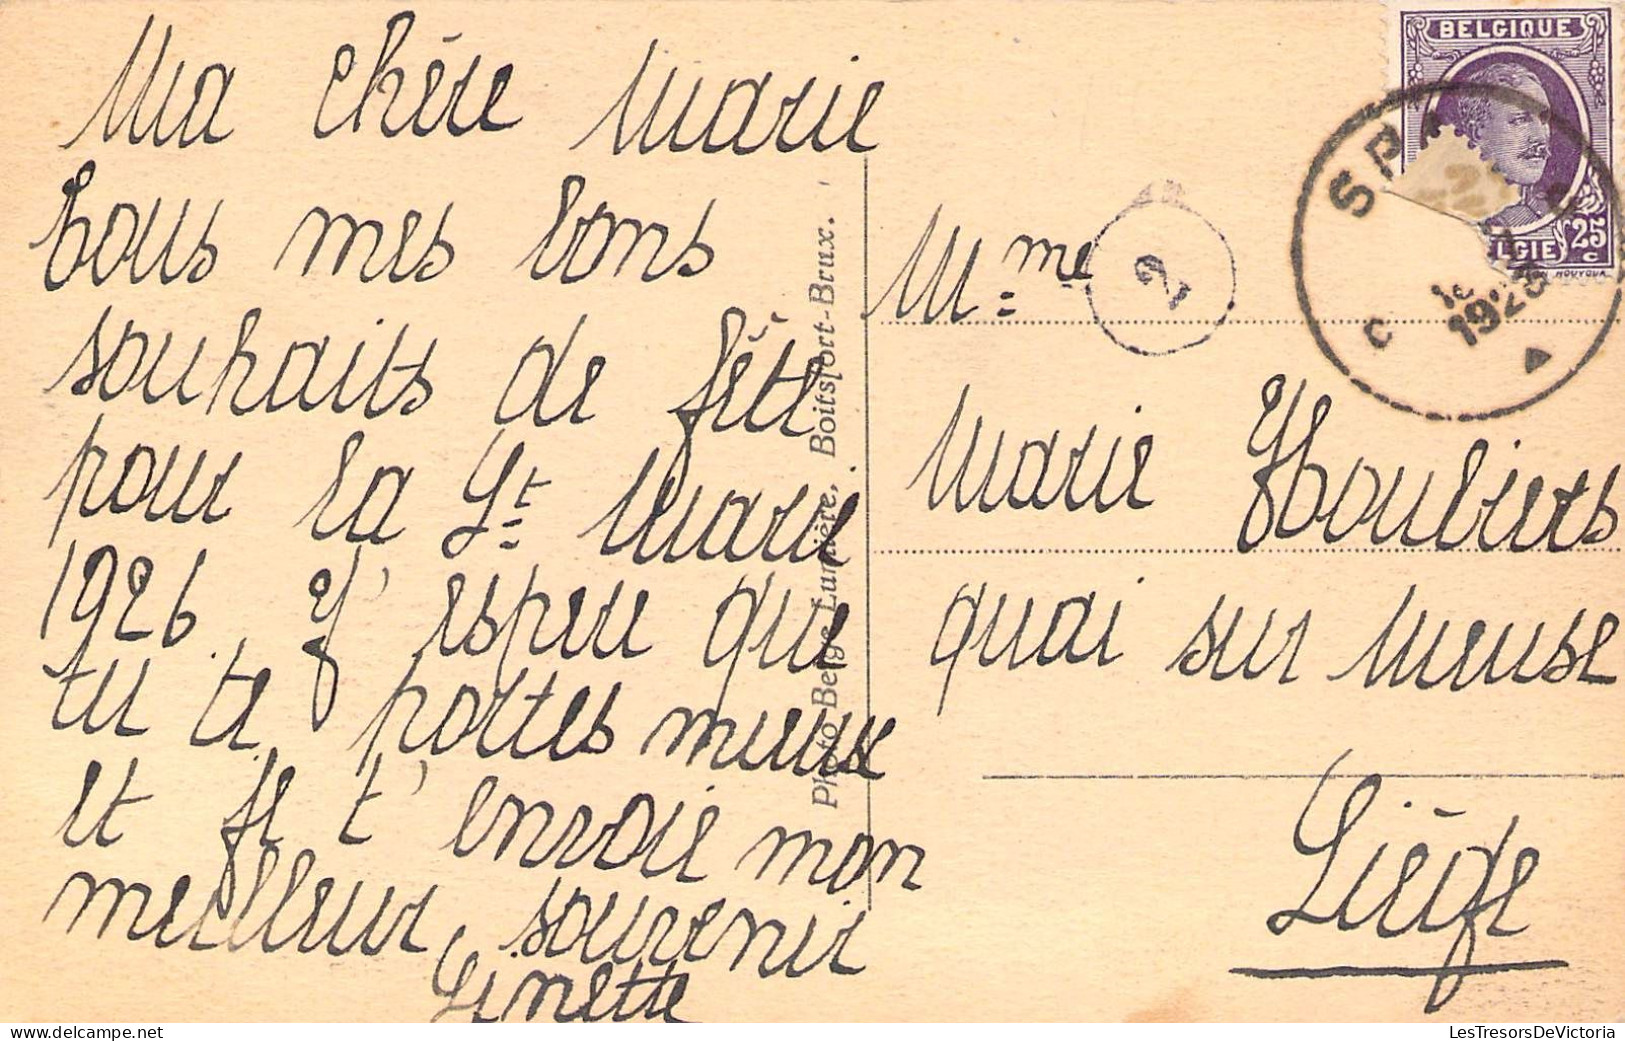 Ma chère Marie
tous mes bons
souhaits de fête
pour la St Marie
1926. J'espère que
tu te portes mieux
et je t'envoie mon
meilleur souvenir
Ginette
Photo Belge Lumière, Boitsfort-Brux.
Mme
Marie
quai sur Meuse
Liège
2
BELGIQUE
BELGIE 25 c
HOUYOUX
SPA
C
LesTresorsDeVictoria